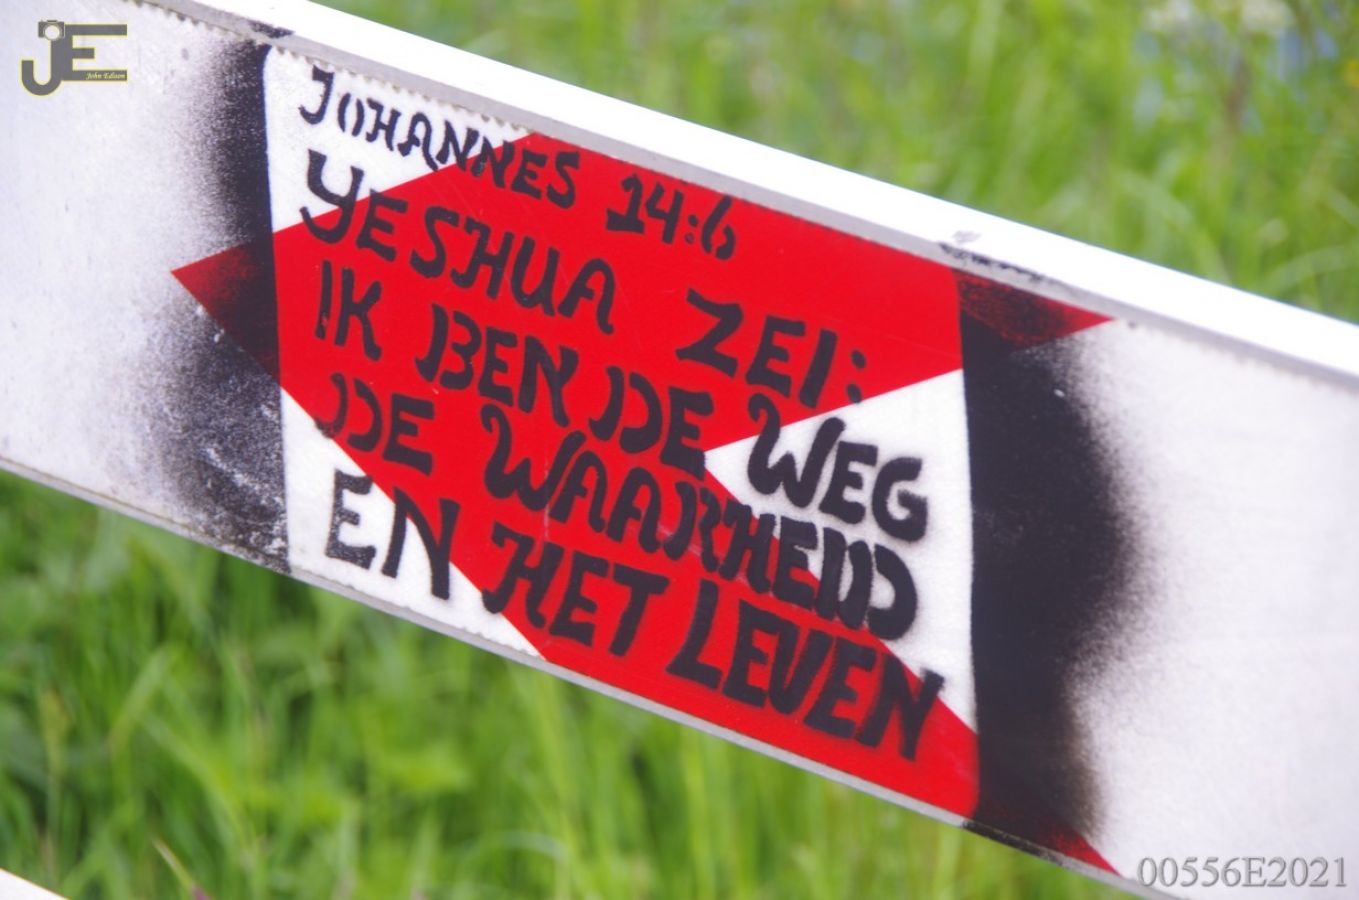 JE
John Edison
JOHANNES 14:6
YESHUA ZEI:
IK BEN DE WEG
DE WAARHEID
EN HET LEVEN
00556E2021